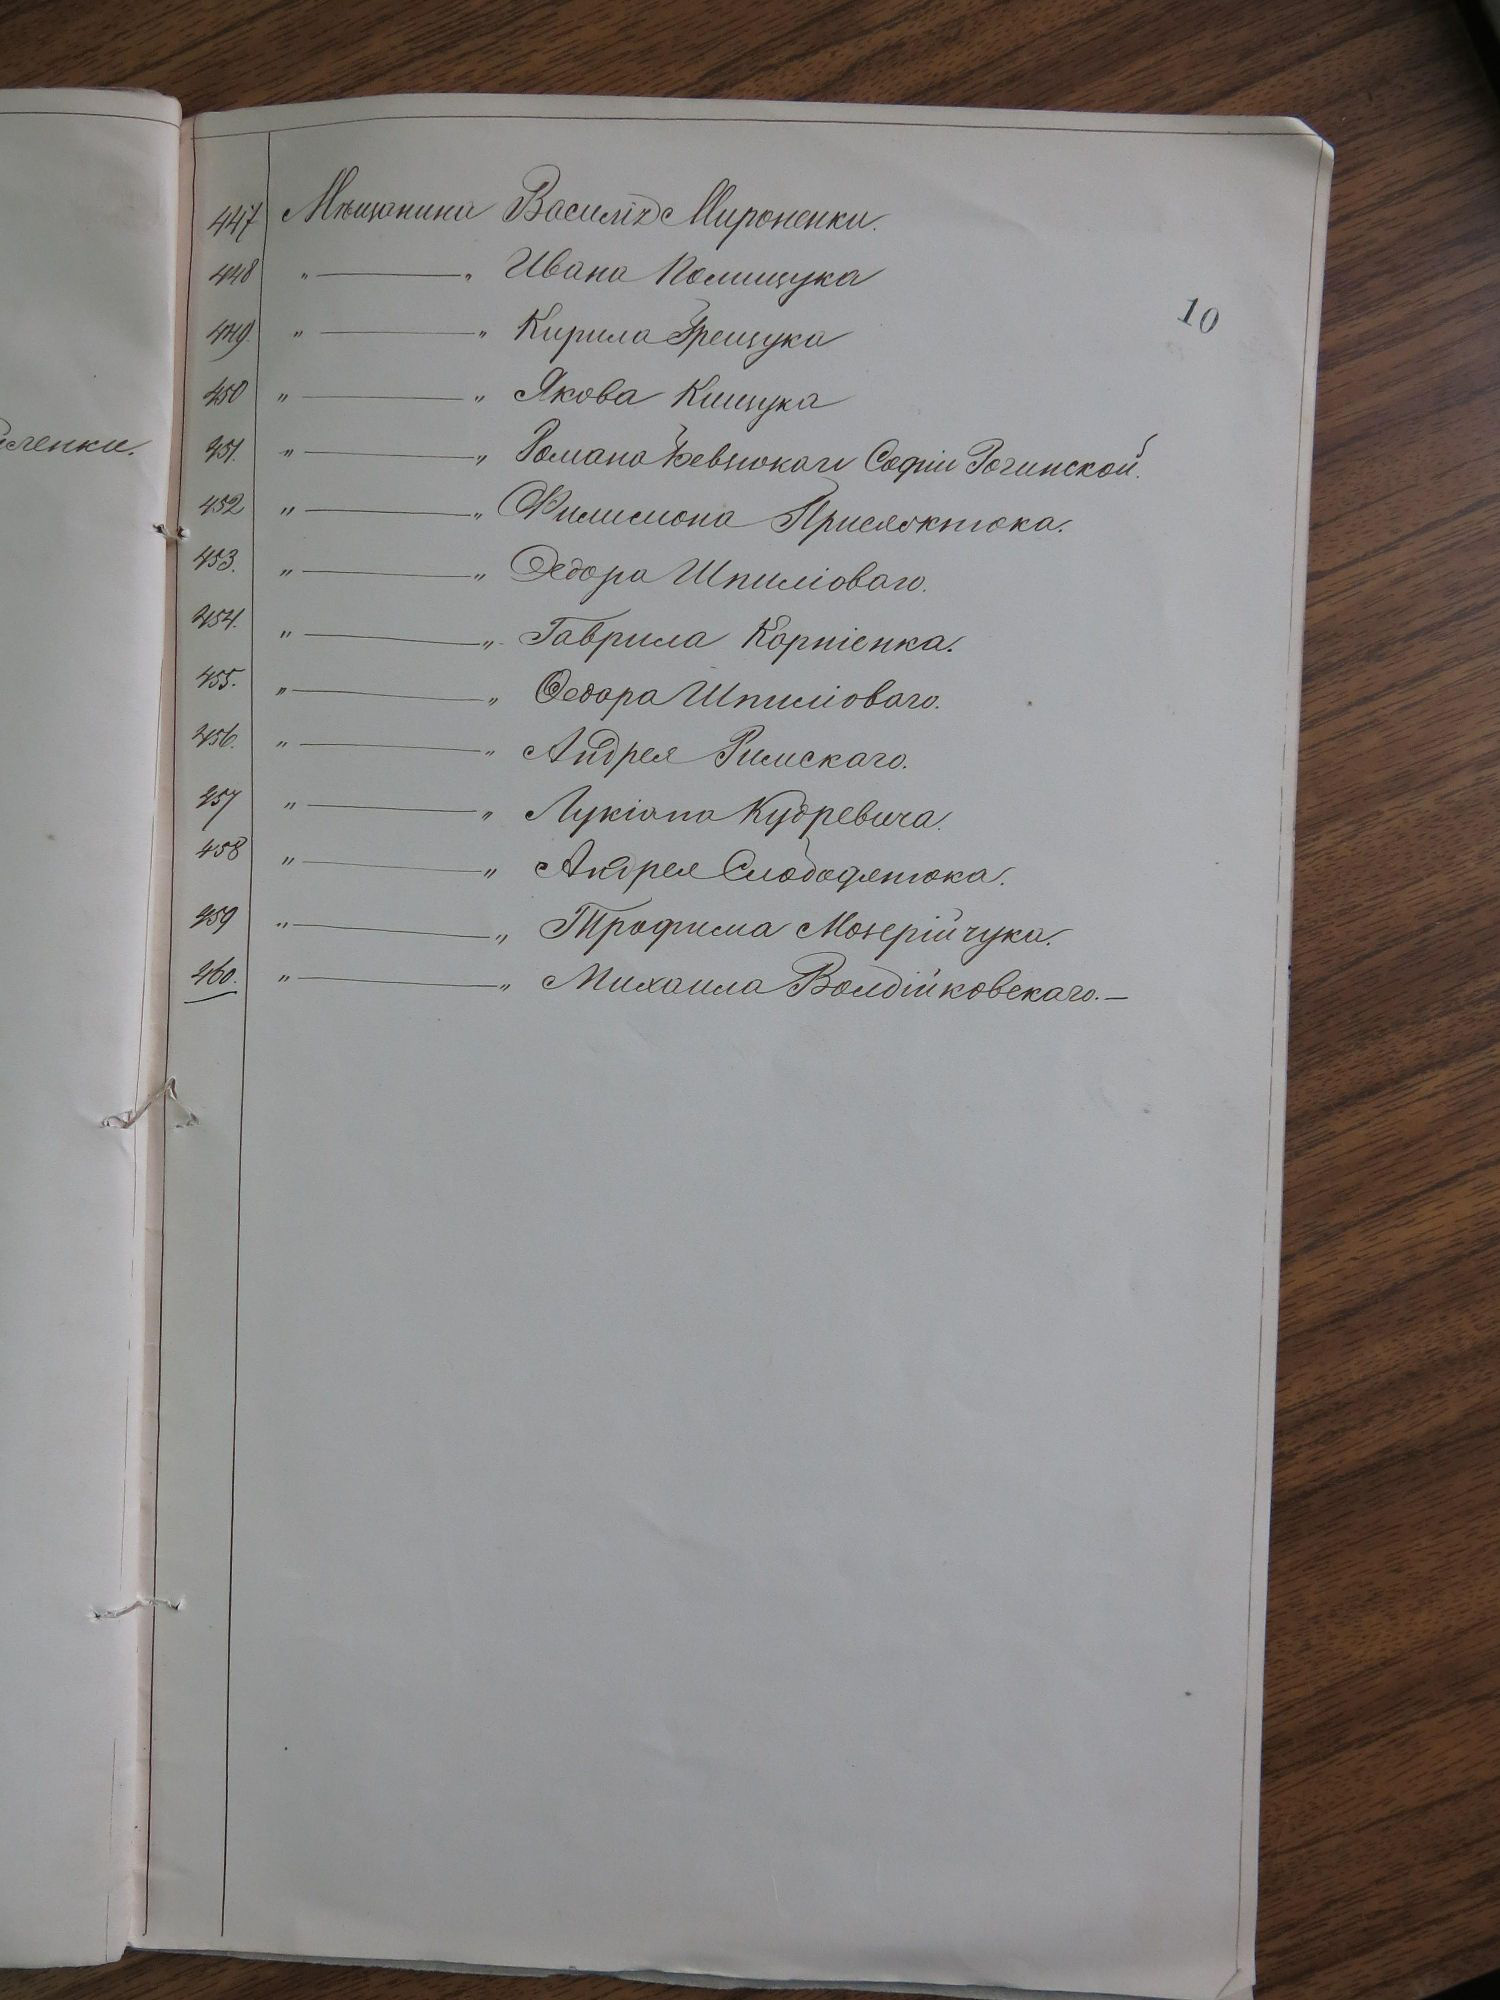 10
447 Мѣщанина Василія Мироненки.
448 " — " Ивана Полищука
449. " — " Кирила Грещука
450 " — " Якова Кищука
451. " — " Романа Софіи Рогинской.
452 " — " Филимона Присяжнюка.
453. " — " Федора Шпиліоваго.
454. " — " Гаврила Корніенка.
455. " — " Федора Шпиліоваго.
456. " — " Андрея Римскаго.
457 " — " Лукіана Кудревича.
458 " — " Андрея Слободянюка.
459 " — " Трофима
460. " — " Михаила —